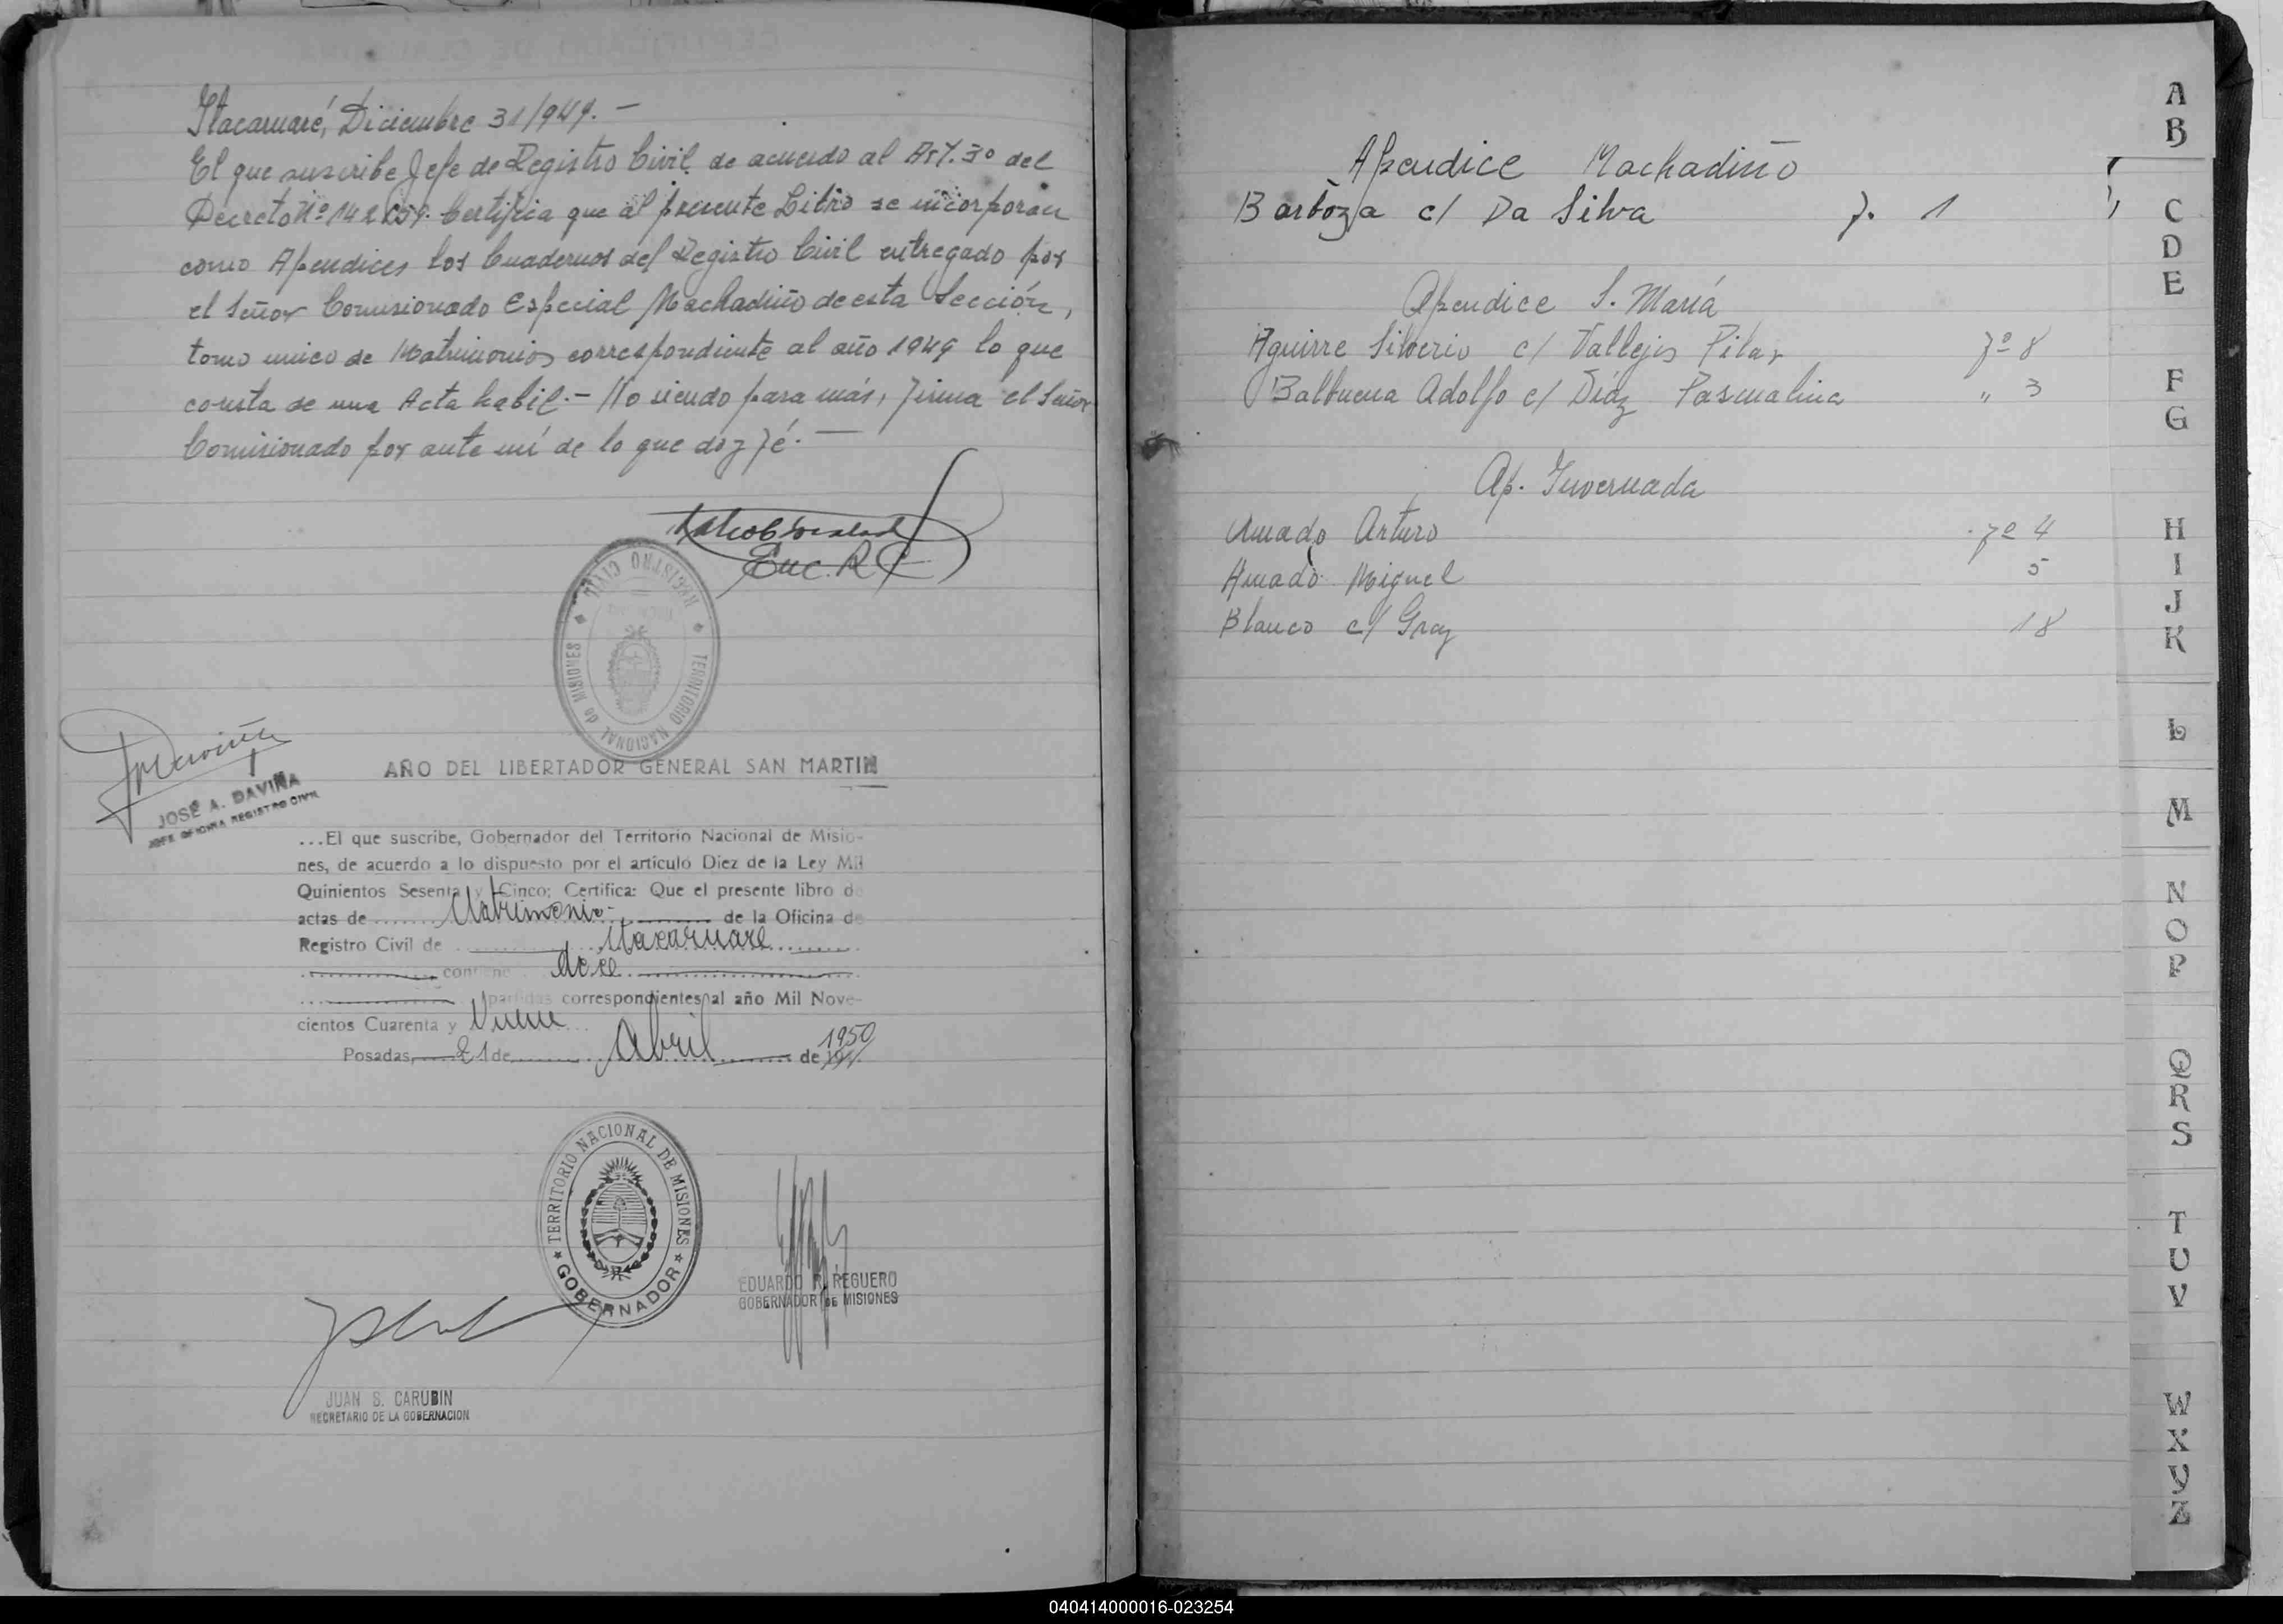 Itacaruaré, Diciembre 31/949.-
El que suscribe Jefe de Registro Civil de acuerdo al Art. 3º del
Decreto Nº Certifica que al presente Libro se incorporan
como Apendices los Cuadernos del Registro Civil entregado por
el Señor Comisionado Especial Machadiño de esta Sección,
tomo unico de Matrimonios correspondiente al año 1949 lo que
consta de una Acta habil.- No siendo para más, firma el Señor
Comisionado por ante mí de lo que doy fé.-
Enc. R C
REGISTRO CIVIL
TERRITORIO NACIONAL de MISIONES
JOSÉ A. DAVIÑA
JEFE OFICINA REGISTRO CIVIL
AÑO DEL LIBERTADOR GENERAL SAN MARTIN
...El que suscribe, Gobernador del Territorio Nacional de Misio-
nes, de acuerdo a lo dispuesto por el artículo Diez de la Ley Mil
Quinientos Sesenta y Cinco; Certifica: Que el presente libro de
actas de Matrimonio de la Oficina de
Registro Civil de Itacaruare
contiene doce
partidas correspondientes al año Mil Nove-
cientos Cuarenta y Nueve
Posadas, 21 de Abril de 1950
TERRITORIO NACIONAL DE MISIONES
GOBERNADOR
EDUARDO R. REGUERO
GOBERNADOR DE MISIONES
JUAN S. CARUBIN
SECRETARIO DE LA GOBERNACION
Apendice Machadiño
Barboza c/ Da Silva f. 1
Apendice S. María
Aguirre Silverio c/ Vallejos Pilar fº 8
Balbuena Adolfo c/ Díaz Pascualina " 3
Ap. Invernada
Amado Arturo fº 4
Amado Miguel 5
Blanco c/ Gray 18
A
B
C
D
E
F
G
H
I
J
K
L
M
N
O
P
Q
R
S
T
U
V
W
X
Y
Z
040414000016-023254